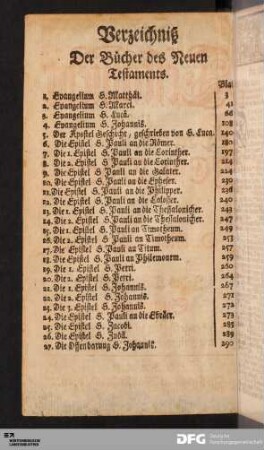 Verzeichniß
Der Bücher des Neuen
Testaments.
Blat
1. Evangelium S. Matthäi. 3
2. Evangelium S. Marci. 41
3. Evangelium S. Lucä. 66
4. Evangelium S. Johannis. 108
5. Der Apostel Geschicht, geschrieben von S. Luca. 140
6. Die Epistel S. Pauli an die Römer. 180
7. Die 1. Epistel S. Pauli an die Corinther. 197
8. Die 2. Epistel S. Pauli an die Corinther. 214
9. Die Epistel S. Pauli an die Galater. 224
10. Die Epistel S. Pauli an die Epheser. 230
11. Die Epistel S. Pauli an die Philipper. 236
12. Die Epistel S. Pauli an die Colosser. 240
13. Die 1. Epistel S. Pauli an die Thessalonicher. 243
14. Die 2. Epistel S. Pauli an die Thessalonicher. 247
15. Die 1. Epistel S. Pauli an Timotheum. 249
16. Die 2. Epistel S. Pauli an Timotheum. 253
17. Die Epistel S. Pauli an Titum. 257
18. Die Epistel S. Pauli an Philemonem. 259
19. Die 1. Epistel S. Petri. 260
20. Die 2. Epistel S. Petri. 264
21. Die 1. Epistel S. Johannis. 267
22. Die 2. Epistel S. Johannis. 271
23. Die 3. Epistel S. Johannis. 272
24. Die Epistel S. Pauli an die Ebräer. 273
25. Die Epistel S. Jacobi. 285
26. Die Epistel S. Judä. 289
27. Die Offenbarung S. Johannis. 290
DFG Deutsche
Forschungsgemeinschaft